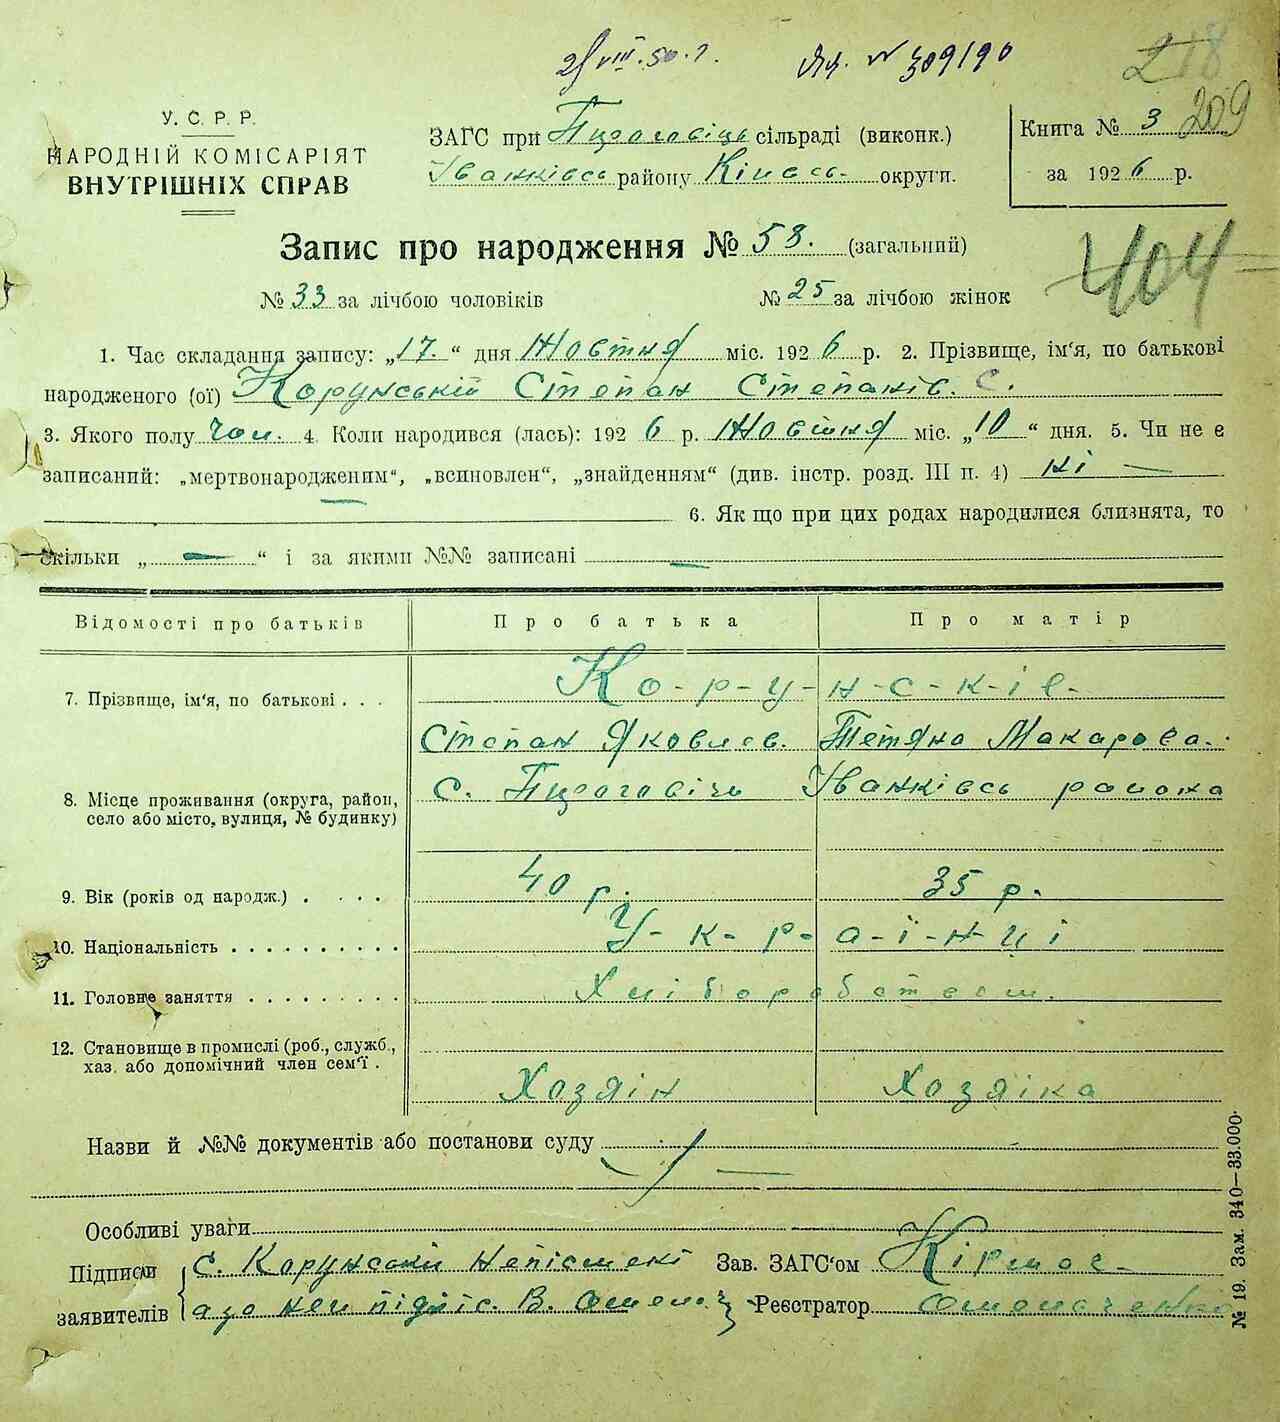 28/VIII.50.г. № 309190
209
У.С.Р.Р.
НАРОДНІЙ КОМІСАРІЯТ
ВНУТРІШНІХ СПРАВ
ЗАГС при сільраді (виконк.)
Іванківсь району Київсь. округи.
Книга № 3
за 1926 р.
Запис про народження № 58. (загальний)
404
№ 33 за лічбою чоловіків № 25 за лічбою жінок
1. Час складання запису: „17.“ дня Жовтня міс. 1926 р. 2. Прізвище, ім'я, по батькові
народженого (ої) Корунський Степан Степанів. С.
3. Якого полу чол. 4. Коли народився (лась): 1926 р. Жовтня міс. „10“ дня. 5. Чи не є
записаний: „мертвонародженим“, „всиновлен“, „знайденням“ (див. інстр. розд. III п. 4) ні —
6. Як що при цих родах народилися близнята, то
скільки „ — “ і за якими №№ записані —
Відомості про батьків Про батька Про матір
7. Прізвище, ім‘я, по батькові . . . Ко-р-у-н-с-к-і-е-
Степан Яковлев. Тетяна Макарова.
8. Місце проживання (округа, район,
село або місто, вулиця, № будинку)
с. Іванківсь района
9. Вік (років од народж.) . . . . 40 р. 35 р.
10. Національність . . . . . . . . . . У-к-р-а-ї-н-ц і
11. Головне заняття . . . . . . . . . Хліборобством.
12. Становище в промислі (роб., служб.,
хаз. або допомічний член сем‘ї .
Хозяін Хозяіка
Назви й №№ документів або постанови суду —
Особливі уваги
Підписи
заявителів
С. Корунський Неписмені
а за них підпис. В.
Зав. ЗАГС‘ом
Реєстратор
№ 19. Зам. 340—33.000.